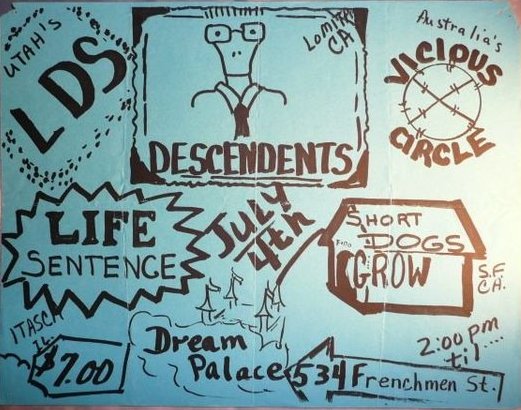 UTAH'S
LDS
DESCENDENTS
LOMITA
CA
Australia's
VICIOUS
CIRCLE
LIFE
SENTENCE
ITASCA
IL
JULY
4th
SHORT
DOGS
GROW
S.F.
CA.
$7.00
Dream
Palace
534 Frenchmen St.
2:00 pm
til....